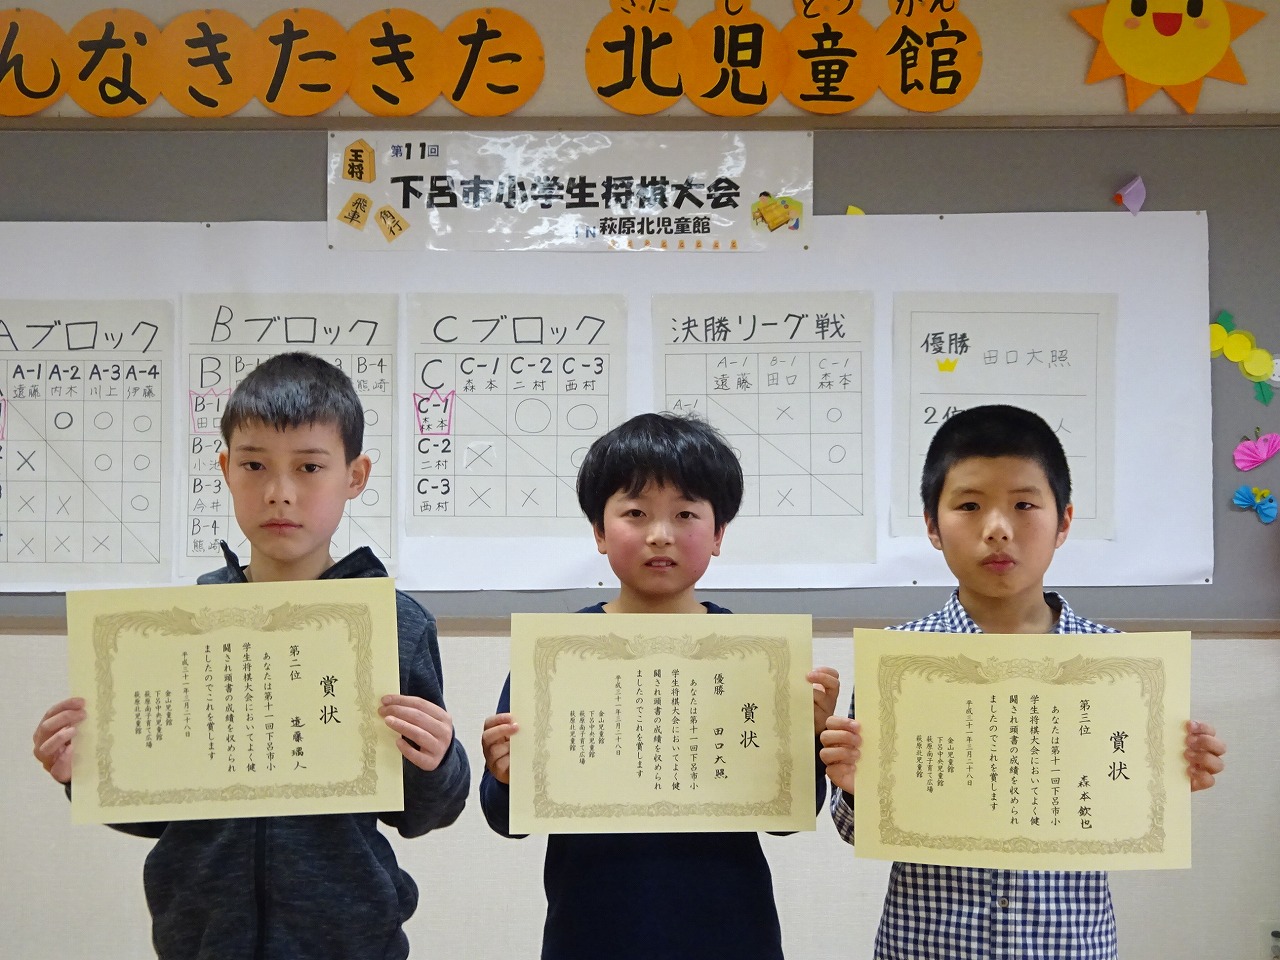 んなきたきた 北児童館
きた じ どう かん
第11回
下呂市小学生将棋大会
IN 萩原北児童館
王将
飛車
角行
Aブロック
A-1 A-2 A-3 A-4
遠藤 内木 川上 伊藤
Bブロック
B
B-4
熊崎
B-1
田口
B-2
小池
B-3
今井
B-4
熊崎
Cブロック
C C-1 C-2 C-3
森本 二村 西村
C-1
森本
C-2
二村
C-3
西村
決勝リーグ戦
A-1 B-1 C-1
遠藤 田口 森本
A-1
優勝 田口大照
2位
人
賞状
第二位 遠藤瑀人
あなたは第十一回下呂市小
学生将棋大会においてよく健
闘され頭書の成績を収められ
ましたのでこれを賞します
平成三十一年三月二十八日
金山児童館
下呂中央児童館
萩原南子育て広場
萩原北児童館
賞状
優勝 田口大照
あなたは第十一回下呂市小
学生将棋大会においてよく健
闘され頭書の成績を収められ
ましたのでこれを賞します
平成三十一年三月二十八日
金山児童館
下呂中央児童館
萩原南子育て広場
萩原北児童館
賞状
第三位 森本欽也
あなたは第十一回下呂市小
学生将棋大会においてよく健
闘され頭書の成績を収められ
ましたのでこれを賞します
平成三十一年三月二十八日
金山児童館
下呂中央児童館
萩原南子育て広場
萩原北児童館